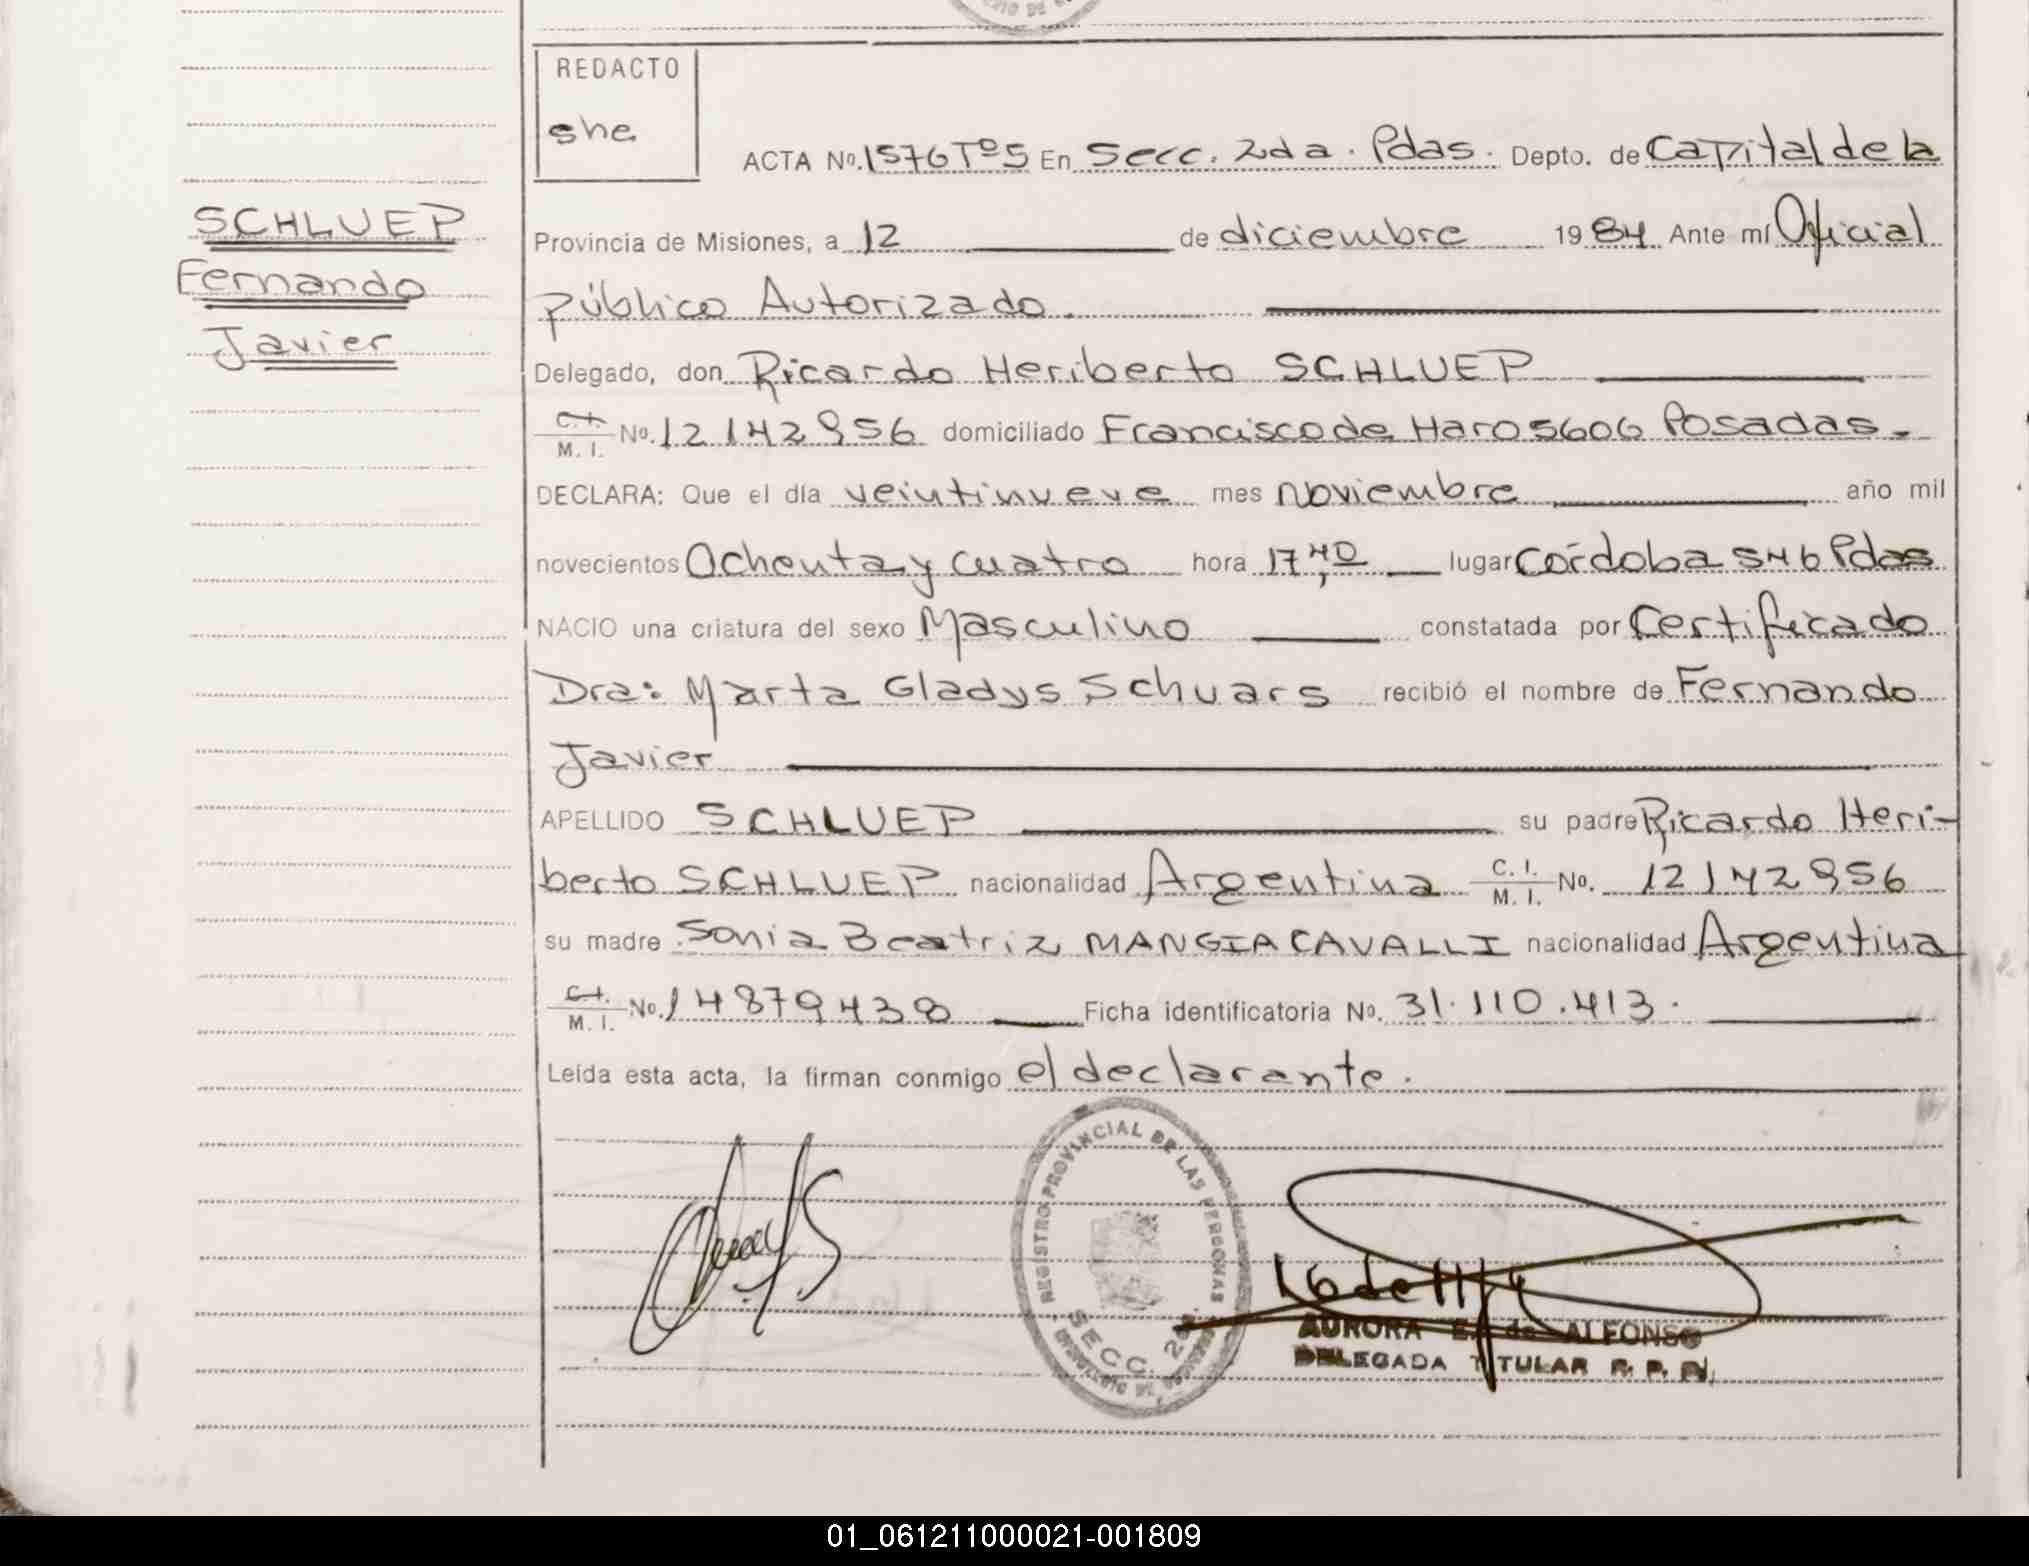 REDACTO
she
ACTA Nº. 1576 Tº 5 En Secc. 2da. Pdas. Depto. de Capital de la
SCHLUEP
Fernando
Javier
Provincia de Misiones, a 12 de diciembre 1984 Ante mí Oficial
Público Autorizado.
Delegado, don Ricardo Heriberto SCHLUEP
C.I. M. I. Nº. 12142856 domiciliado Francisco de Haro 5606 Posadas.
DECLARA: Que el día veintinueve mes noviembre año mil
novecientos Ochenta y cuatro hora 17,40 lugar Córdoba 546 Pdas
NACIO una criatura del sexo Masculino constatada por Certificado
Dra: Marta Gladys Schuars recibió el nombre de Fernando
Javier
APELLIDO SCHLUEP su padre Ricardo Heri-
berto SCHLUEP nacionalidad Argentina C. I. M. I. Nº. 12142856
su madre Sonia Beatriz MANGIACAVALLI nacionalidad Argentina
C.I. M. I. Nº. 14879438 Ficha identificatoria Nº. 31.110.413.
Leída esta acta, la firman conmigo el declarante.
REGISTRO PROVINCIAL DE LAS PERSONAS
SECC. 2da.
AURORA E. de ALFONSO
DELEGADA TITULAR R. P. P.
01_061211000021-001809